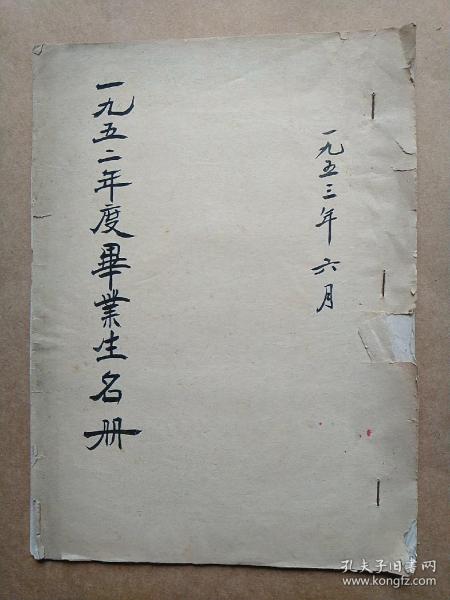 一九五三年六月
一九五二年度畢業生名册
孔夫子旧书网
www.kongfz.com